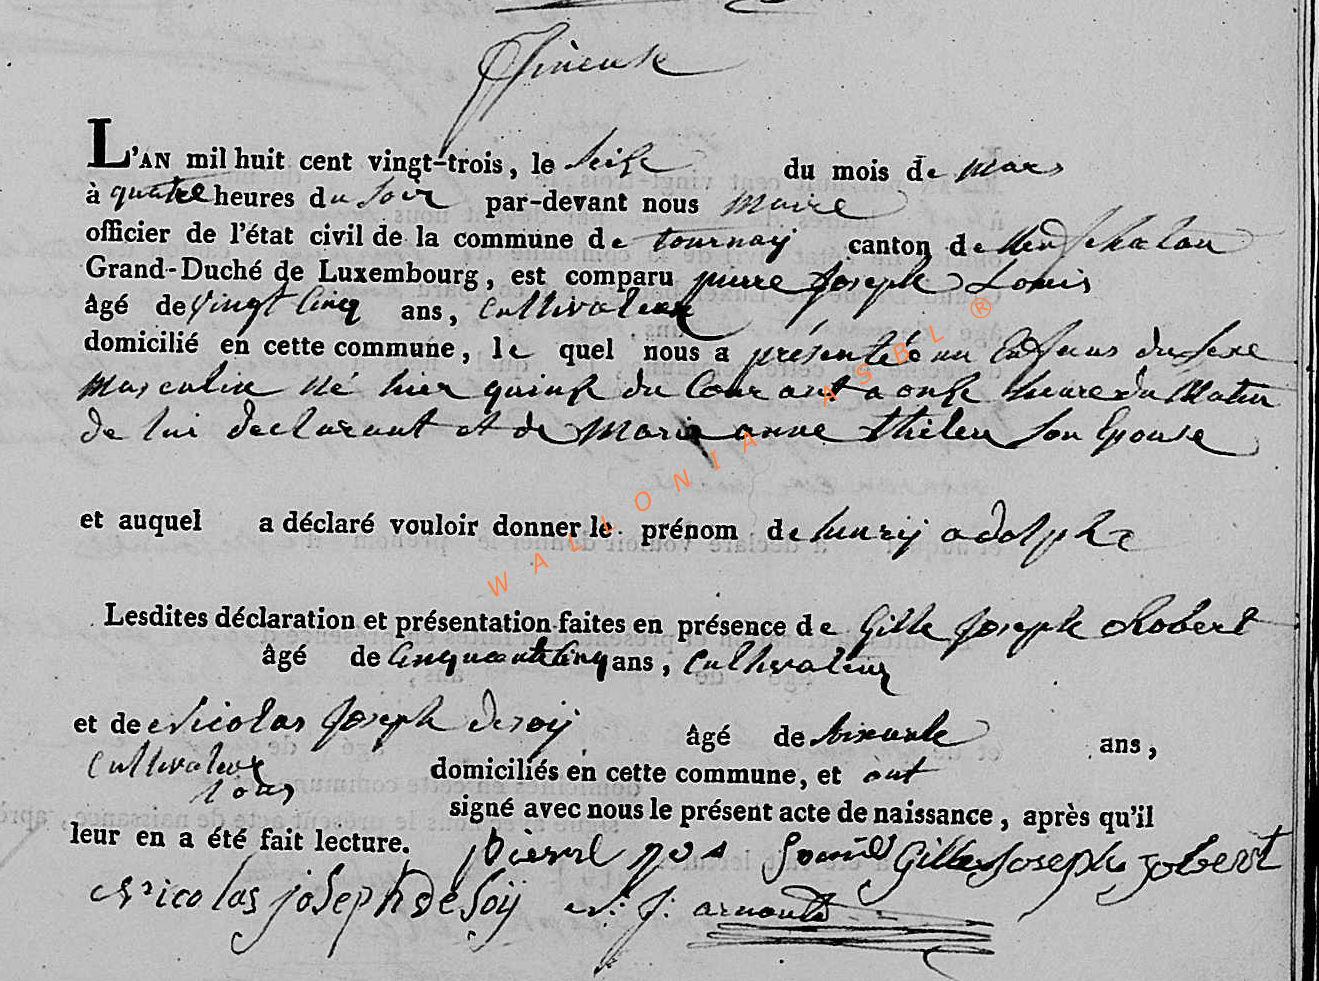 L'AN mil huit cent vingt-trois, le seise du mois de mars
à quatre heures du soir par-devant nous maire
officier de l'état civil de la commune de tournay canton de neufchatau
Grand-Duché de Luxembourg, est comparu pierre joseph Louis
âgé de vingt cinq ans, cultivateur
domicilié en cette commune, le quel nous a présentée un Enfans du sexe
masculin né hier quinse du Courant a onse heure du Matin
de lui declarant et de Marie anne thilen son Epouse
et auquel a déclaré vouloir donner le prénom de henrij adolphe
Lesdites déclaration et présentation faites en présence de Gille joseph Robert
âgé de Cinquante Cinq ans, Cultivateur
et de Nicolas joseph desoij âgé de soixante ans,
Cultivateur domiciliés en cette commune, et ont
tous signé avec nous le présent acte de naissance, après qu'il
leur en a été fait lecture. pierre jos Gille joseph robert
Nicolas joseph desoij
WALLONIA ASBL ®